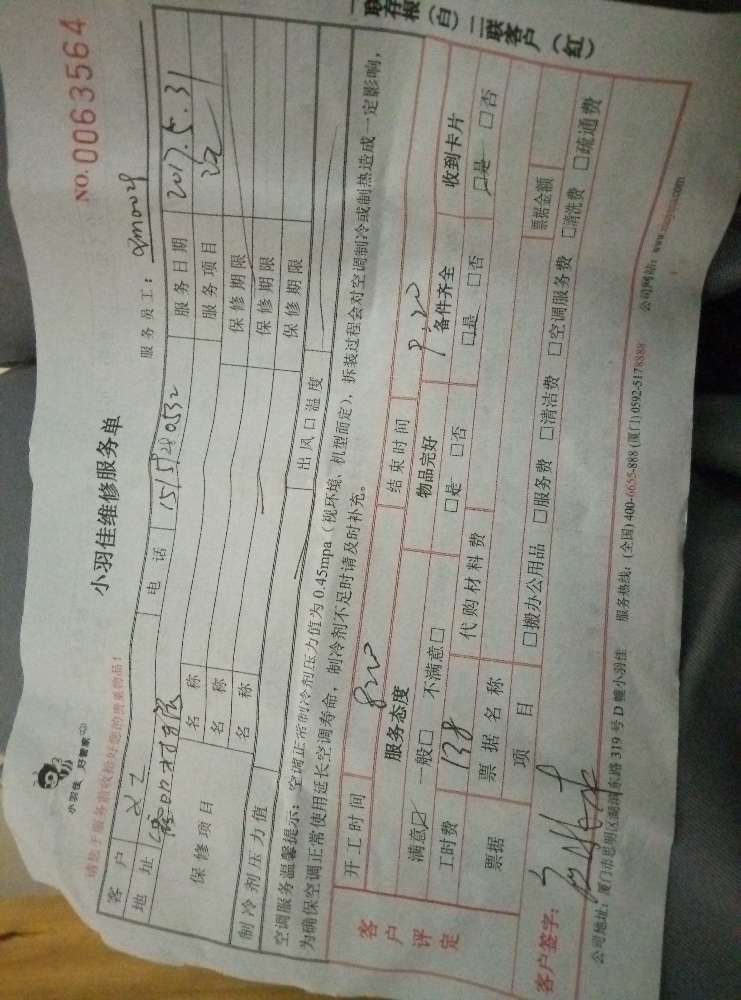 联存根(白) 二联客户(红)
小羽佳 好管家
小羽佳维修服务单
NO.0063564
请您于服务前收拾好您的贵重物品!
服务员工:
客户 电话 服务日期 2017.5.31
地址 服务项目
保修项目 名称 保修期限
名称 保修期限
名称 保修期限
制冷剂压力值 出风口温度
空调服务温馨提示:空调正常制冷剂压力值为 0.45mpa(视环境、机型而定),拆装过程会对空调制冷或制热造成一定影响,
为确保空调正常使用延长空调寿命,制冷剂不足时请及时补充。
客户评定
开工时间 结束时间
服务态度 物品完好 备件齐全 收到卡片
满意☑ 一般□ 不满意□ □是 □否 □是 □否 ☑是 □否
工时费 138 代购材料费
票据 票据名称 票据金额
项目 □搬办公用品 □服务费 □清洁费 □空调服务费 □清洗费 □疏通费
客户签字:
公司地址:厦门市思明区湖滨东路 319 号 D 幢小羽佳 服务热线:(全国)400-6655-888 (厦门)0592-5178888 公司网站: